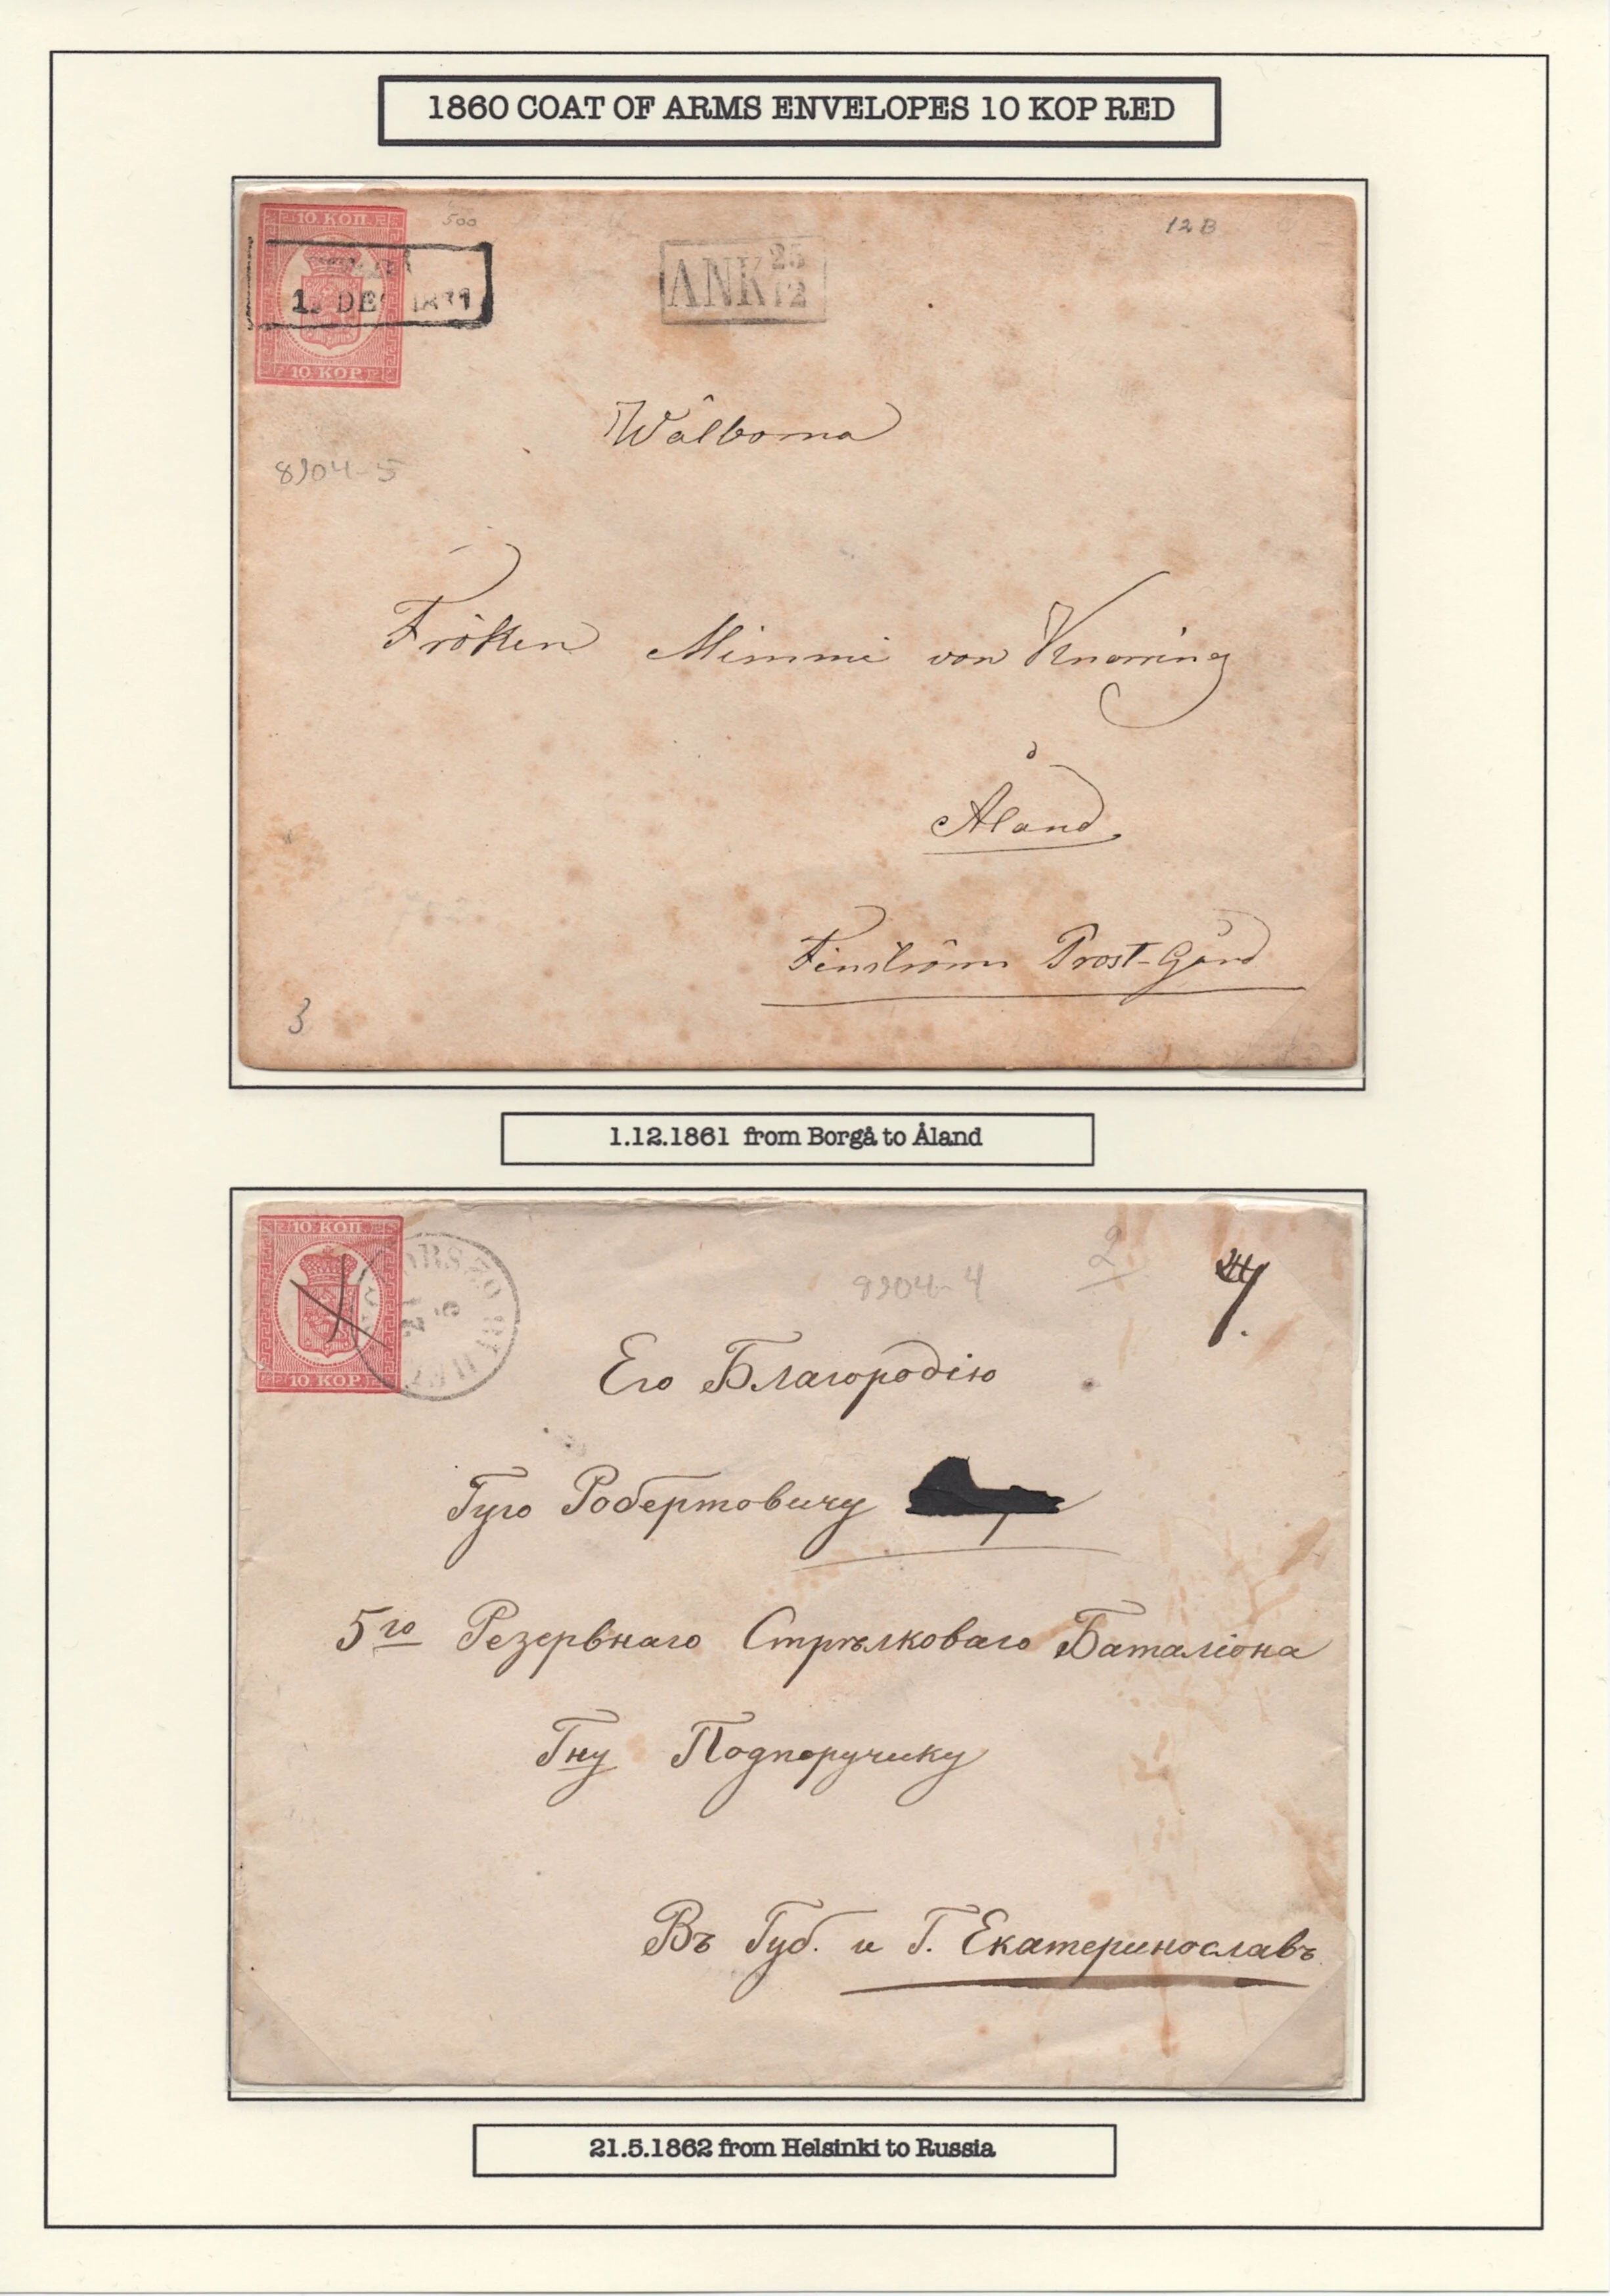 1860 COAT OF ARMS ENVELOPES 10 KOP RED
10 КОП.
500
12 B
ANK 25/12
DEC
10 KOP
Wälborna
8904-5
Fröken Mimmi von Knorring
å
Åland
Finström Prost-Gård
3
1.12.1861 from Borgå to Åland
10 КОП.
2
8904-4
10 KOP
Его Благородію
Гуго Робертовичу
5го Резервнаго Стрѣлковаго Баталіона
Гну Подпоручику
Въ Губ. и Г. Екатеринославъ
21.5.1862 from Helsinki to Russia